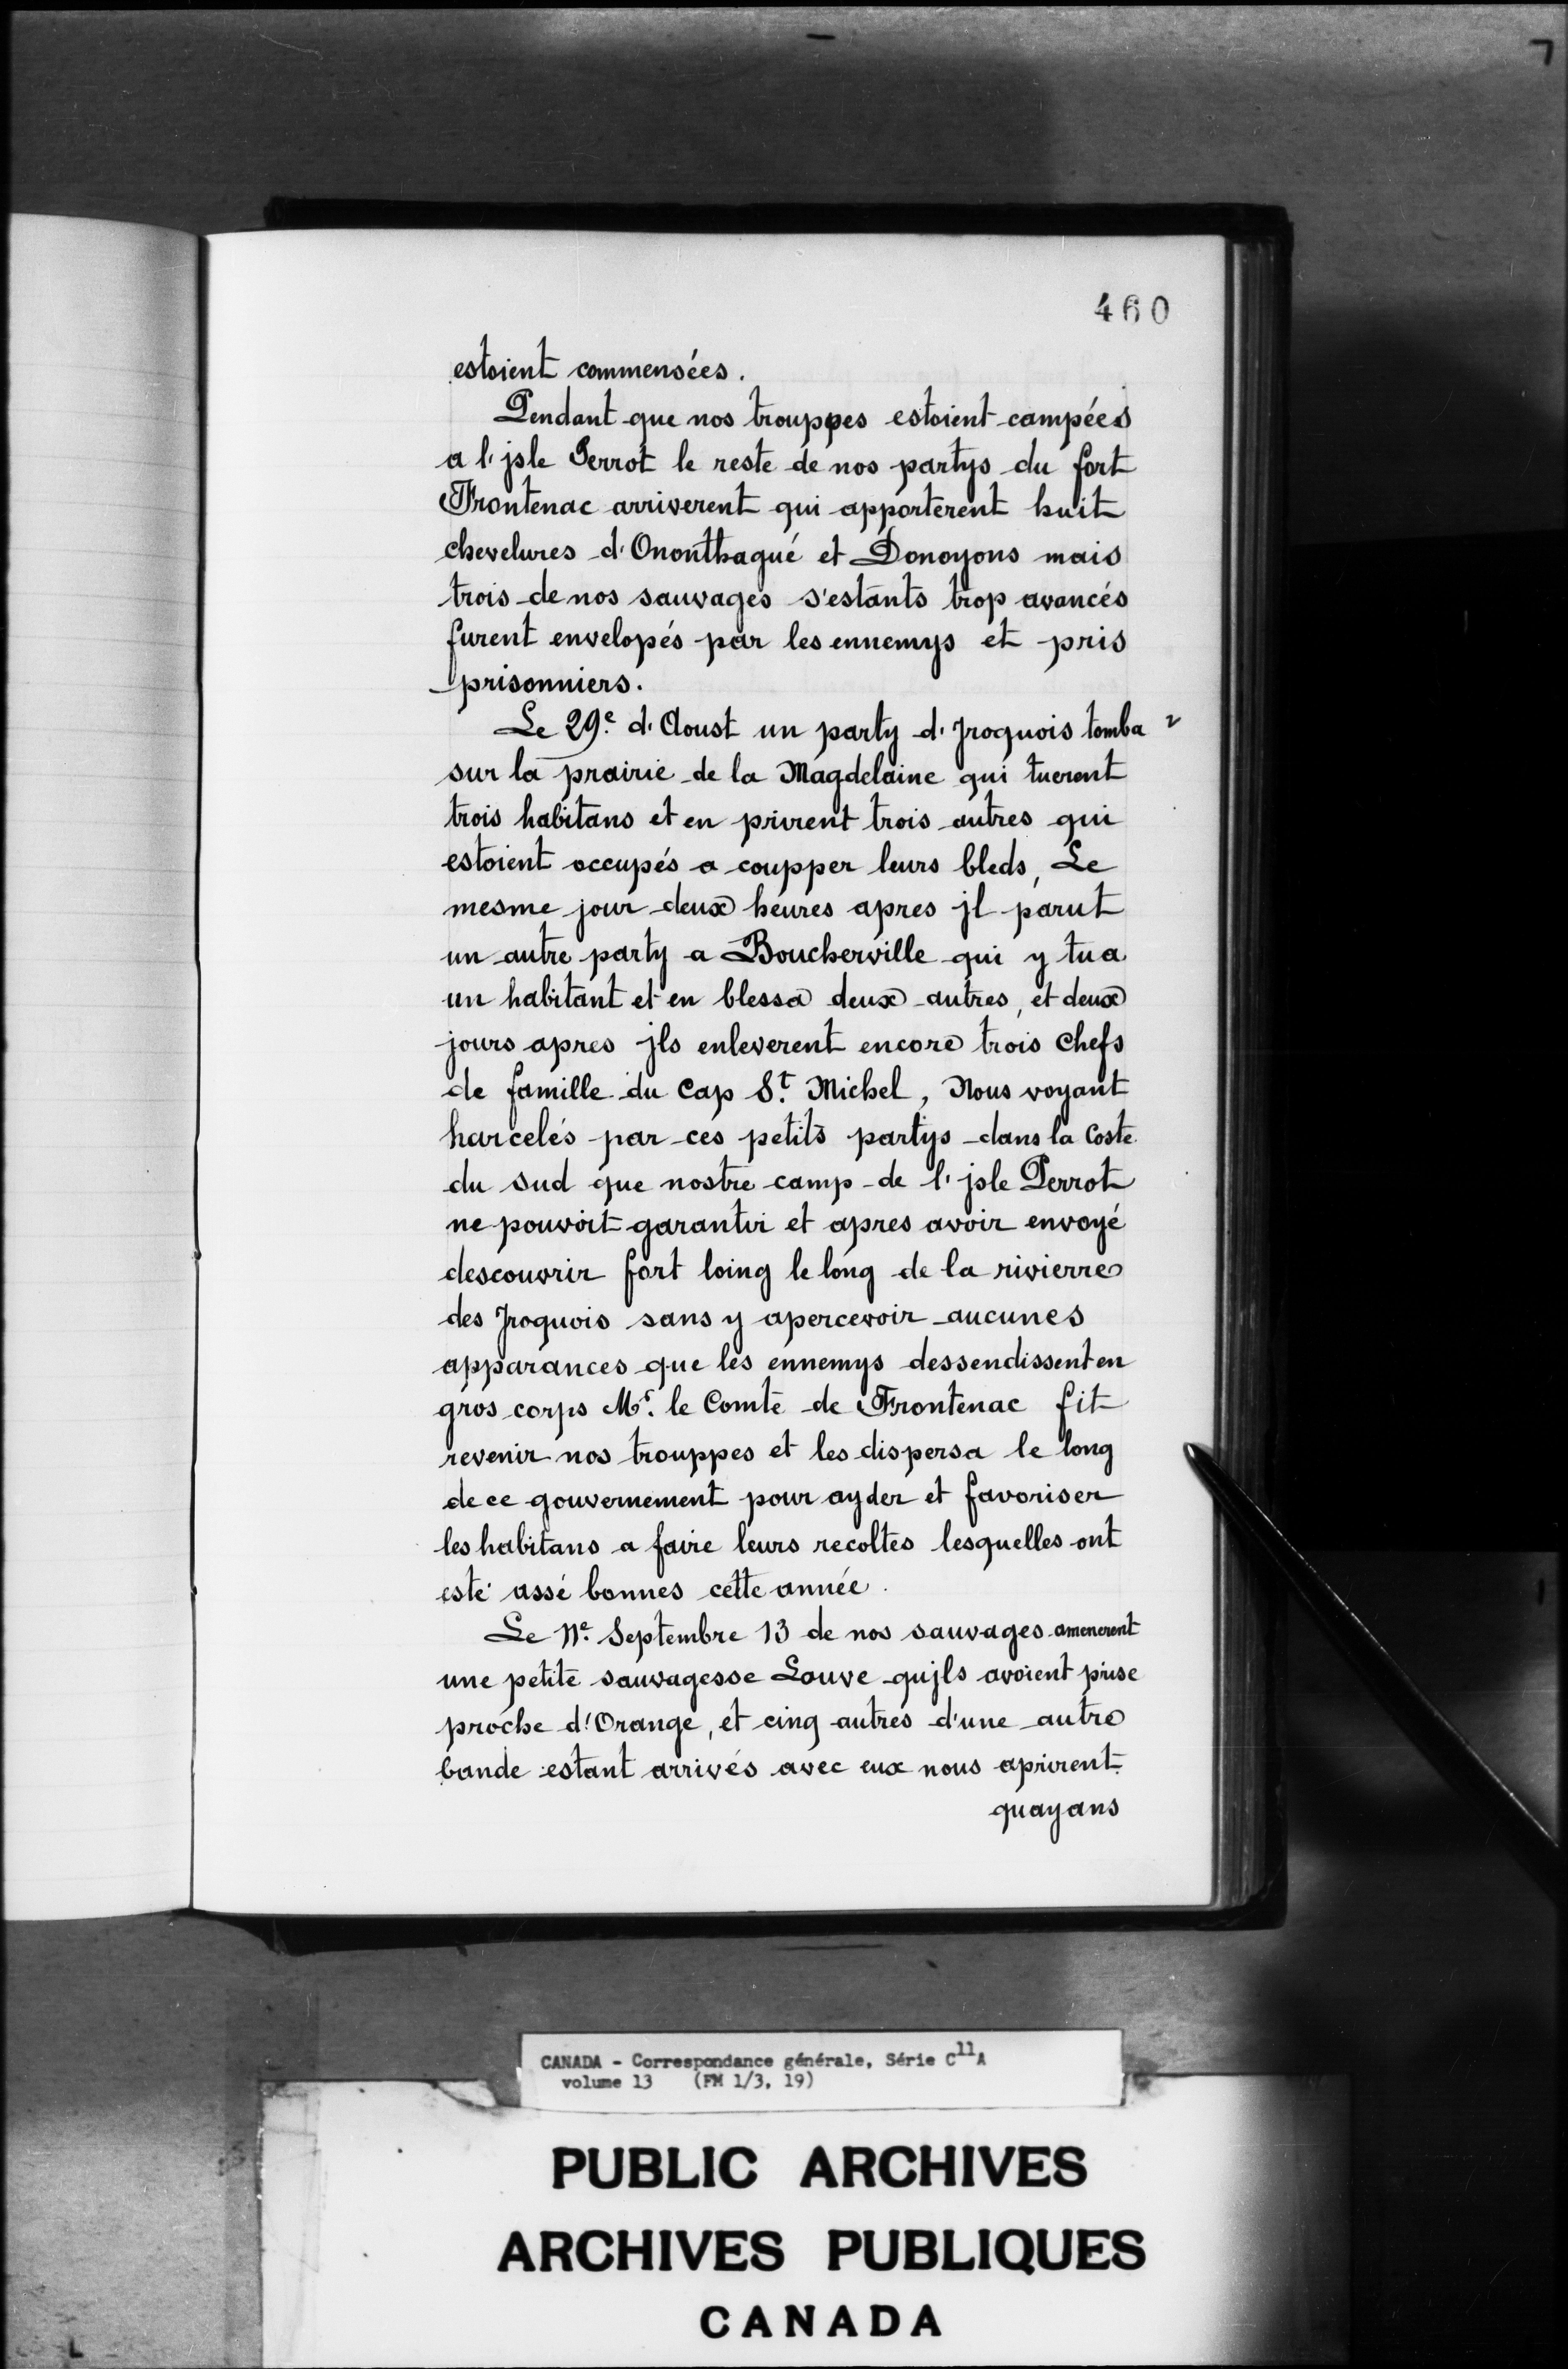 460
estoient commensées.
Pendant que nos trouppes estoient campées
a l'jsle Perrot le reste de nos partys du fort
Frontenac arriverent qui apporterent huit
chevelures d'Ononthagué et Donoyons mais
trois de nos sauvages s'estants trop avancés
furent envelopés par les ennemys et pris
prisonniers.
Le 29e. d'Aoust un party d'Jroquois tomba
sur la prairie de la Magdelaine qui tuerent
trois habitans et en prirent trois autres qui
estoient occupés a coupper leurs bleds, Le
mesme jour deux heures apres jl parut
un autre party a Boucherville qui y tua
un habitant et en blessa deux autres, et deux
jours apres jls enleverent encore trois chefs
de famille du Cap St. Michel, Nous voyant
harcelés par ces petits partys dans la Coste
du sud que nostre camp de l'jsle Perrot
ne pouvoit garantir et apres avoir envoyé
descouvrir fort loing le long de la rivierre
des Jroquois sans y apercevoir aucunes
apparances que les ennemys dessendissent en
gros corps Mr. le Comte de Frontenac fit
revenir nos trouppes et les dispersa le long
de ce gouvernement pour ayder et favoriser
les habitans a faire leurs recoltes lesquelles ont
esté assé bonnes cette année.
Le 11e. Septembre 13 de nos sauvages amenerent
une petite sauvagesse Louve qujls avoient prise
proche d'Orange, et cinq autres d'une autre
bande estant arrivés avec eux nous aprirent
quayans
CANADA - Correspondance générale, Série C11A
volume 13 (FM 1/3, 19)
PUBLIC ARCHIVES
ARCHIVES PUBLIQUES
CANADA